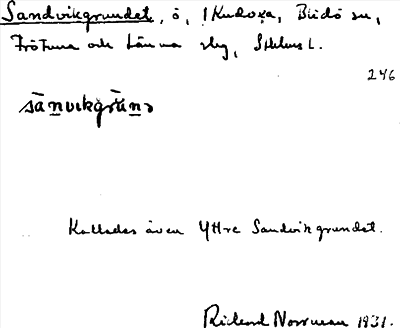 Sandvikgrundet, ö, 1 Kudoxa, Blidö sn,
Frötuna och Länna slg, Sthlms l.
246
sānvikgrānd
Kallades även Yttre Sandvikgrundet.
Rickard Norrman 1931.